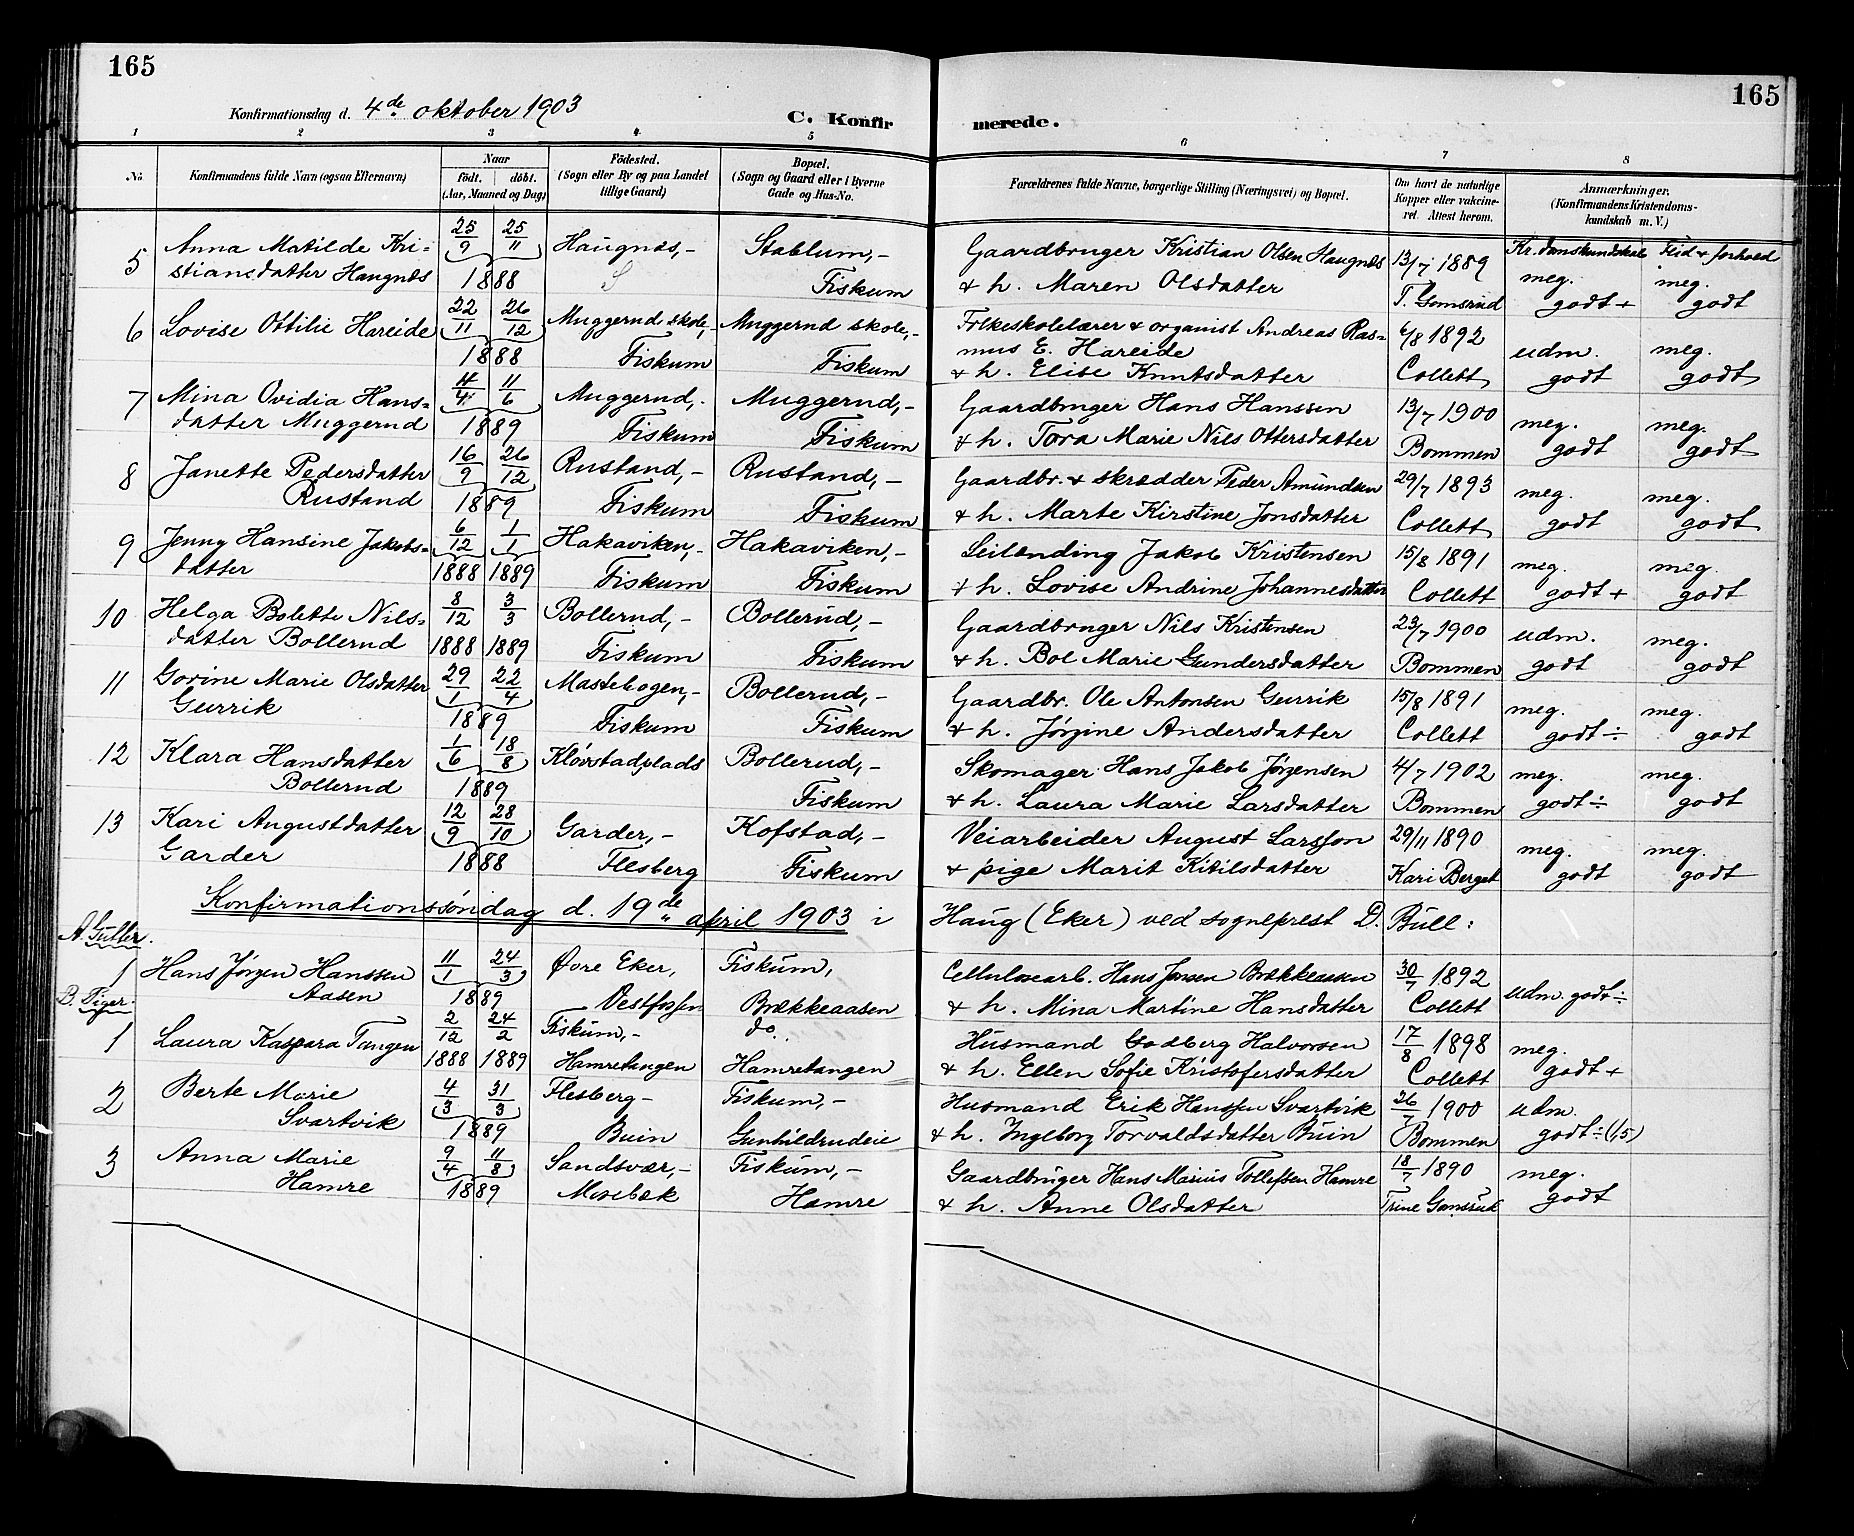 165
165
Konfirmationsdag d. 4de oktober 1903
C. Konfirmerede.
1 2 3 4 5 6 7 8
No
Konfirmandens fulde Navn (ogsaa Efternavn)
Naar
födt. döbt.
(Aar, Maaned og Dag)
Födested.
(Sogn eller By og paa Landet
tillige Gaard)
Bopæl.
(Sogn og Gaard eller i Byerne
Gade og Hus-No.
Forældrenes fulde Navne, borgerlige Stilling (Næringsvei) og Bopæl.
Om havt de naturlige
Kopper eller vakcine-
ret. Attest herom.
Anmærkninger.
(Konfirmandens Kristendoms-
kundskab m. V.)
Kr.domskundskab Flid & forhold
5 Anna Matilde Kri- 25/9 25/11 Haugnæs,- Stablum,- Gaardbruger Kristian Olsen Haugnæs 13/7 1889 meg. meg.
stiansdatter Haugnæs 1888 Fiskum & h. Maren Olsdatter T. Gomsrud godt + godt
6 Lovise Ottilie Hareide 22/11 26/12 Muggerud skole,- Muggerud skole,- Folkeskolelærer & organist Andreas Ras- 6/8 1892 udm. meg.
1888 Fiskum Fiskum mus E. Hareide
& h. Elise Knutsdatter Collett godt godt
7 Mina Ovidia Hans- 4/4 11/6 Muggerud,- Muggerud,- Gaardbruger Hans Hanssen 13/7 1900 meg. meg.
datter Muggerud 1889 Fiskum Fiskum & h. Tora Marie Nils Ottersdatter Bommen godt godt
8 Janette Pedersdatter 16/9 26/12 Rustand,- Rustand,- Gaardbr. & skrædder Peder Amundsen 29/7 1893 meg. meg.
Rustand 1889 Fiskum Fiskum & h. Marte Kirstine Jonsdatter Collett godt godt
9 Jenny Hansine Jakobs- 6/12 1/1 Hakaviken,- Hakaviken,- Leilænding Jakob Kristensen 15/8 1891 meg. meg.
datter 1888 1889 Fiskum Fiskum & h. Lovise Andrine Johannesdatter Collett godt + godt
10 Helga Bolette Nils- 8/12 3/3 Bollerud,- Bollerud,- Gaardbruger Nils Kristensen 23/7 1900 udm. meg.
datter Bollerud 1888 1889 Fiskum Fiskum & h. Bol Marie Gundersdatter Bommen godt godt
11 Gorine Marie Olsdatter 29/1 22/4 Mastebogen,- Bollerud,- Gaardbr. Ole Antonsen Gurrik 15/8 1891 meg. meg.
Gurrik 1889 Fiskum Fiskum & h. Jørgine Andersdatter Collett godt ÷ godt
12 Klara Hansdatter 1/6 18/8 Kløvstadplads Bollerud,- Skomager Hans Jakob Jørgensen 4/7 1902 meg. meg.
Bollerud 1889 Fiskum & h. Laura Marie Larsdatter Bommen godt ÷ godt
13 Kari Augustdatter 12/9 28/10 Garder,- Kofstad,- Veiarbeider August Larsson 29/11 1890 meg. meg.
Garder 1888 Flesberg Fiskum & pige Marit Kitilsdatter Kari Berget godt godt
Konfirmationssøndag d. 19de april 1903 i Haug (Eker) ved sogneprest D. Bull:
A. Gutter.
1 Hans Jørgen Hanssen 11/1 24/3 Øvre Eker, Fiskum, Cellulosearb. Hans Jensen Brækkeaasen 30/7 1892 udm. godt ÷
Aasen 1889 Vestfossen Brækkeaasen & h. Mina Martine Hansdatter Collett
B. Piger.
1 Laura Kaspara Tangen 2/12 24/2 Fiskum,- do. Husmand Godberg Halvorsen 17/8 1898 meg.
1888 1889 Hamretangen Hamretangen & h. Ellen Sofie Kristofersdatter Collett godt +
2 Berte Marie 4/3 31/3 Flesberg- Fiskum,- Husmand Erik Hanssen Svartvik 26/7 1900 udm.
Svartvik 1889 Buin Gunhildrudeie & h. Ingeborg Torvaldsdatter Buin Bommen godt ÷ (1,5)
3 Anna Marie 9/4 11/8 Sandsvær,- Fiskum,- Gaardbruger Hans Marius Tollefsen Hamre 18/7 1890 meg.
Hamre 1889 Morebæk Hamre & h. Anne Olsdatter Trine Gomsrud godt